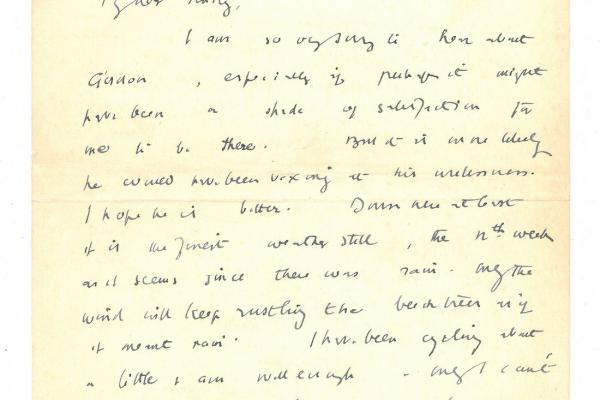 I am so very sorry to hear about
Gordon, especially if perhaps it might
have been a shade of satisfaction for
me to be there. But it is more likely
he would have been vexing at his uselessness.
I hope he is better. Down here at least
it is the finest weather still, the nth week
as it seems since there was rain. Only the
wind will keep rustling the beech trees as if
it meant rain. I have been cycling about
a little & am well enough - only I can't